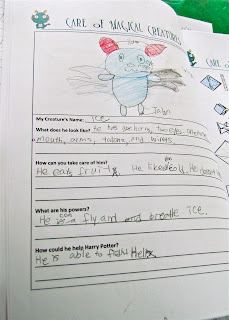 CARE OF MAGICAL CREATURES
My Creature's Name: Ice
What does he look like? He has two two eyes, one
mouth, arms, talons, and wings.
How can you take care of him?
He eats fruits. He likes
What are his powers?
He can fly and breathe ice.
How could he help Harry Potter?
He is able to fight